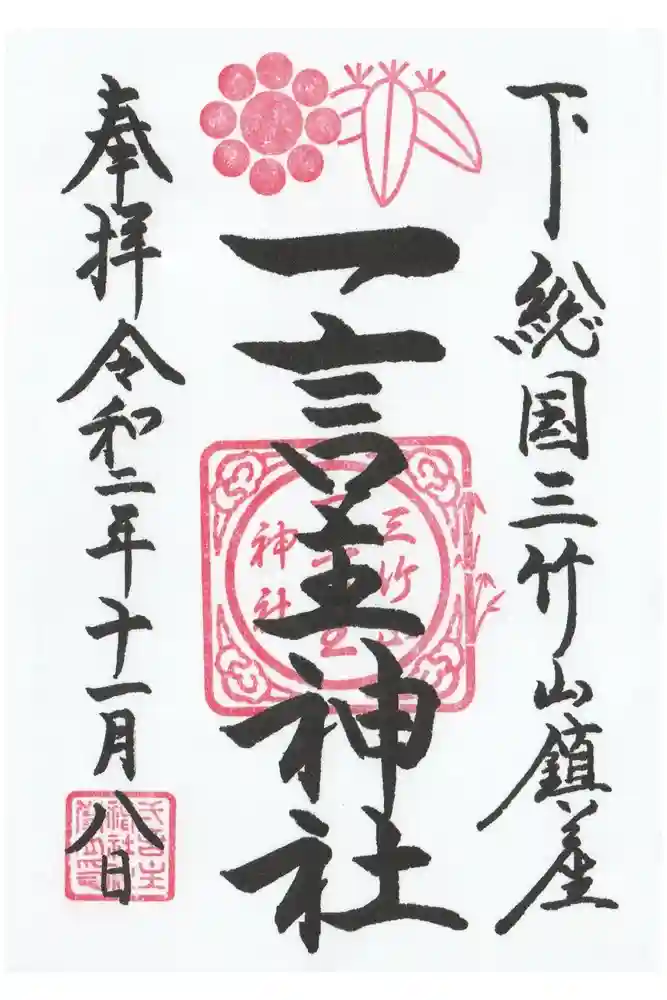 下総国三竹山鎮座
一言主神社
三竹山
神社
奉拝 令和二年十一月八日